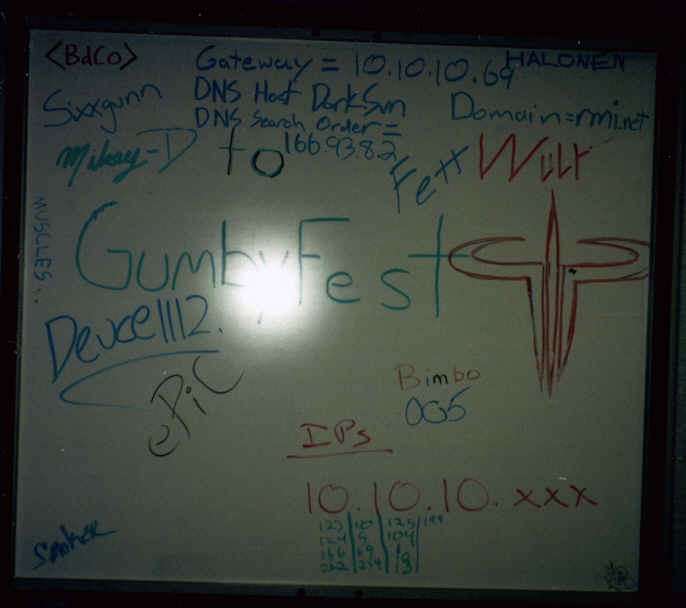 <BdCo>
Gateway = 10.10.10.69
HALONEN
Sixxgunn
DNS Host DarkSun
Domain=rmi.net
DNS Search Order =
166.93.8.2
Mikey-D
to
Fett
Wilt
MUSCLES..
GumbyFest
Deuce1112.
ePiC
Bimbo
005
IPs
10.10.10.xxx
123 10 125 199
104